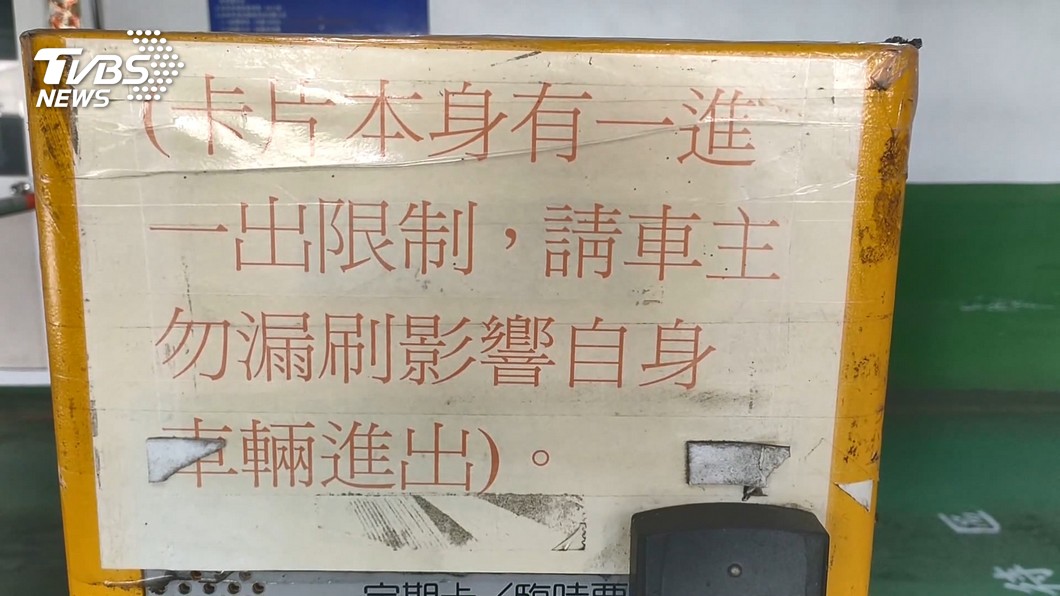 TVBS
NEWS
(卡片本身有一進
一出限制，請車主
勿漏刷影響自身
車輛進出)。
定期卡／臨時票